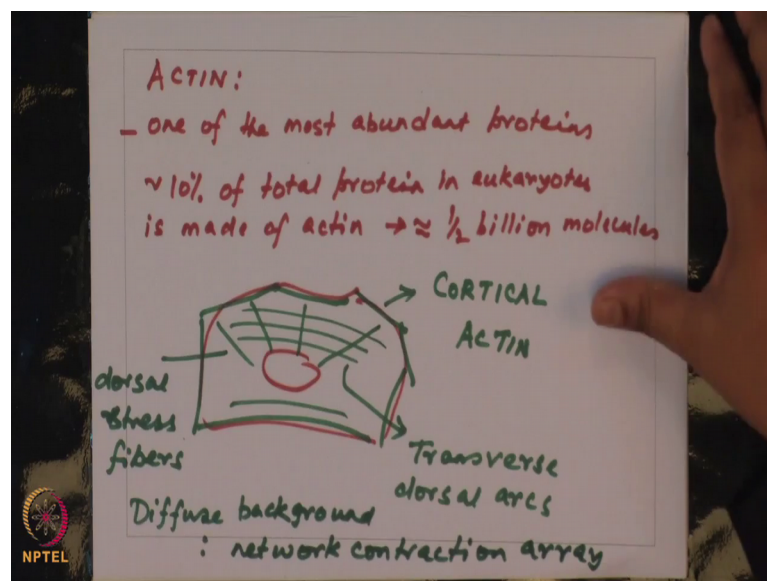 ACTIN:
- one of the most abundant proteins
~ 10% of total protein in eukaryotes
is made of actin → ≈ 1/2 billion molecules
CORTICAL
ACTIN
dorsal
stress
fibers
Transverse
dorsal arcs
Diffuse background
: network contraction array
NPTEL